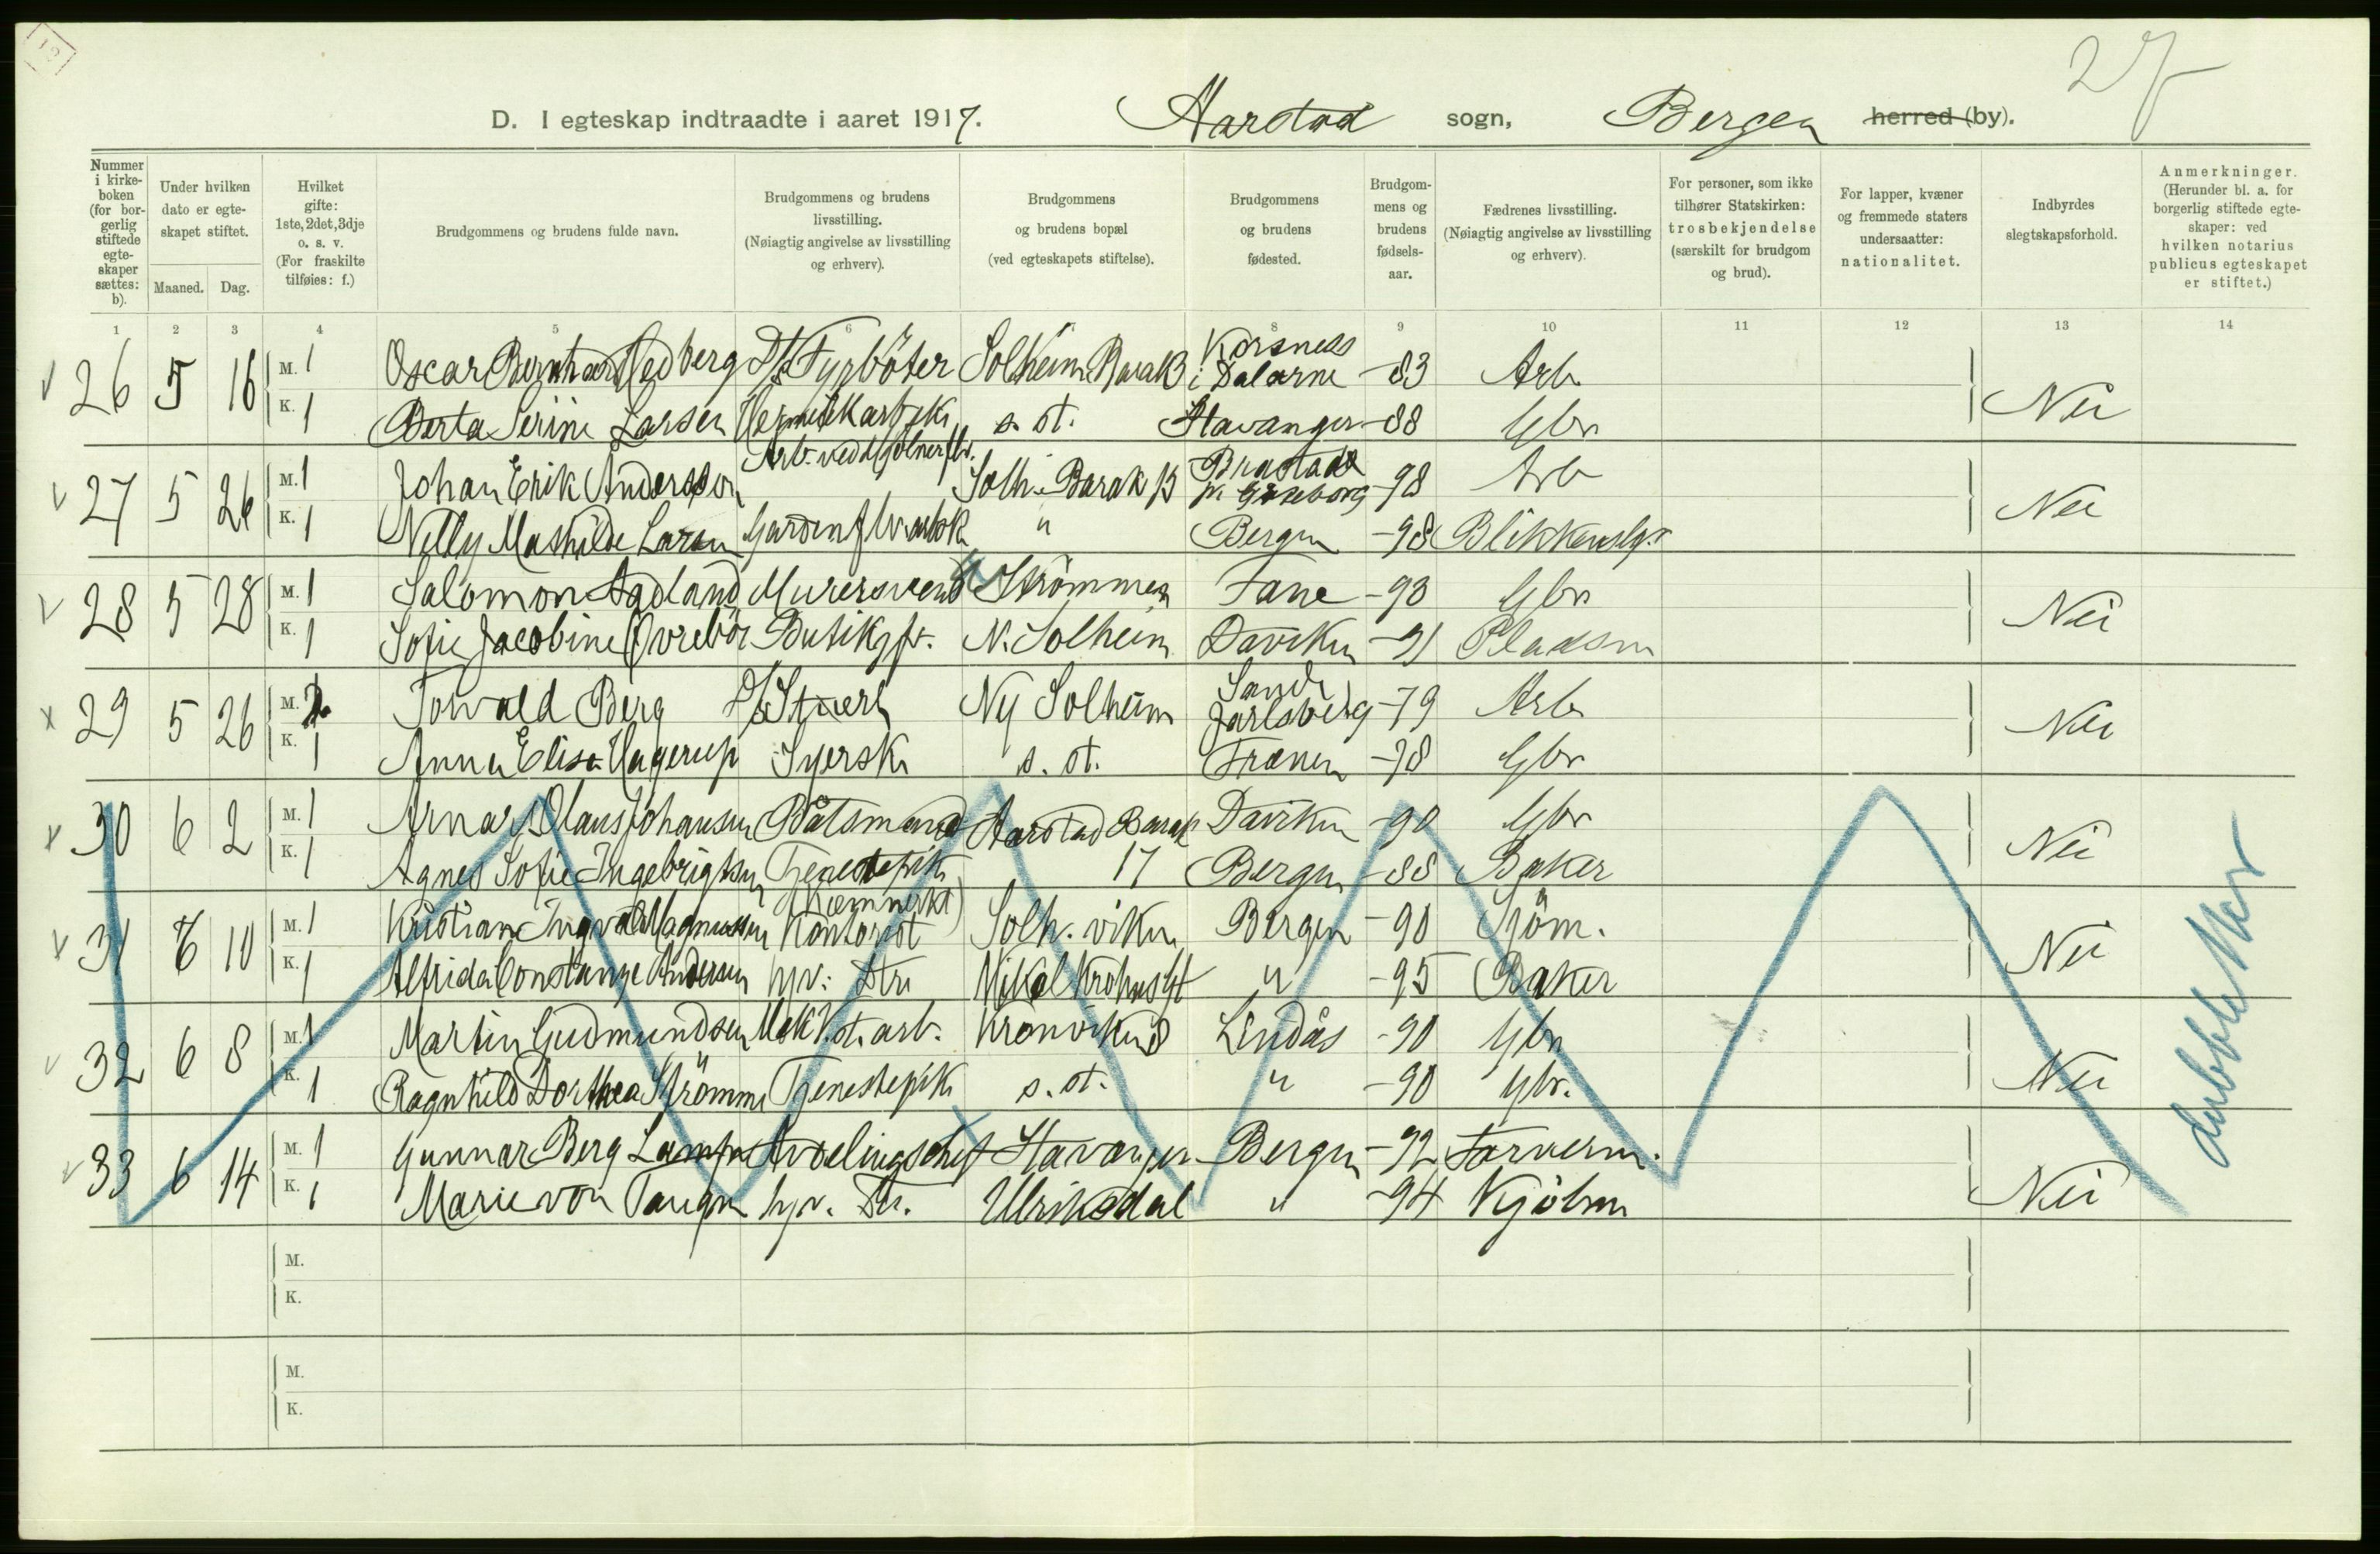 27
D. I egteskap indtraadte i aaret 1917. Aarstad sogn, Bergen herred (by).
Nummer i kirke-boken (for bor-gerlig stiftede egte-skaper sættes: b).
Under hvilken dato er egte-skapet stiftet.
Maaned. Dag.
Hvilket gifte: 1ste, 2det, 3dje o. s. v. (For fraskilte tilføies: f.)
Brudgommens og brudens fulde navn.
Brudgommens og brudens livsstilling. (Nøiagtig angivelse av livsstilling og erhverv).
Brudgommens og brudens bopæl (ved egteskapets stiftelse).
Brudgommens og brudens fødested.
Brudgom-mens og brudens fødsels-aar.
Fædrenes livsstilling. (Nøiagtig angivelse av livsstilling og erhverv).
For personer, som ikke tilhører Statskirken: trosbekjendelse (særskilt for brudgom og brud).
For lapper, kvæner og fremmede staters undersaatter: nationalitet.
Indbyrdes slegtskapsforhold.
Anmerkninger. (Herunder bl. a. for borgerlig stiftede egte-skaper: ved hvilken notarius publicus egteskapet er stiftet.)
1 2 3 4 5 6 7 8 9 10 11 12 13 14
26 5 16 M. 1 Oscar Bernhard Hedberg D/S Fyrbøter Solheim Barak B Korsness i Dalarne -83 Arb. Nei
K. 1 Berta Serine Larsen Hermetikarb.sk s. st. Stavanger -88 Gbr
27 5 26 M. 1 Johan Erik Andersson Arb. ved Solh. Barak B Brastad -98 Arb Nei
K. 1 Nelly Mathilde Larsen " Bergen -98 Blikkenslgr
28 5 28 M. 1 Salomon Aadland Murersvend Strömmen Fane -93 Gbr Nei
K. 1 Sofie Jacobine Øvrebör Butikjfr. N. Solheim Daviken -91 Pladsm
29 5 26 M. 2 Torvald Berg D/S Stuert Ny Solheim Sande Jarlsberg -79 Arb Nei
K. 1 Anna Elisa Hagerup Syersk s. st. Franen -78 Gbr
30 6 2 M. 1 Arnar Olaus Johansen Båtsmand Aarstad Barak 17 Daviken -90 Gbr Nei
K. 1 Agnes Sofie Ingebrigtsen Tjenestepik Bergen -88 Baker
31 6 10 M. 1 Kristian Ingvald Magnussen Kontorist Solh. viken Bergen -90 Sjöm. Nei
K. 1 Alfrida Constanze Andersen hjv. Dtr Mikal Krohnsgt " -95 Baker
32 6 8 M. 1 Martin Gudmundsen Mek V.st. arb. Kronviken 8 Lindås -90 Gbr Nei
K. 1 Ragnhild Dorthea Strömme Tjenestepik s. st. " -90 Gbr.
33 6 14 M. 1 Gunnar Berg Lampe Avdelingschef Stavanger Bergen -92 Farverm. Nei
K. 1 Marie von Tangen hjv. Dtr. Ulriksdal " -94 Kjöbm
M.
K.
M.
K.
dubbletter